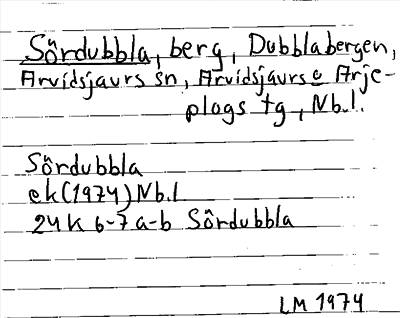 Sördubbla, berg, Dubblabergen,
Arvidsjaurs sn, Arvidsjaurs o Arje-
plogs tg, Nb.l.
Sördubbla
ek(1974)Nb.l
24K 6-7 a-b Sördubbla
LM 1974